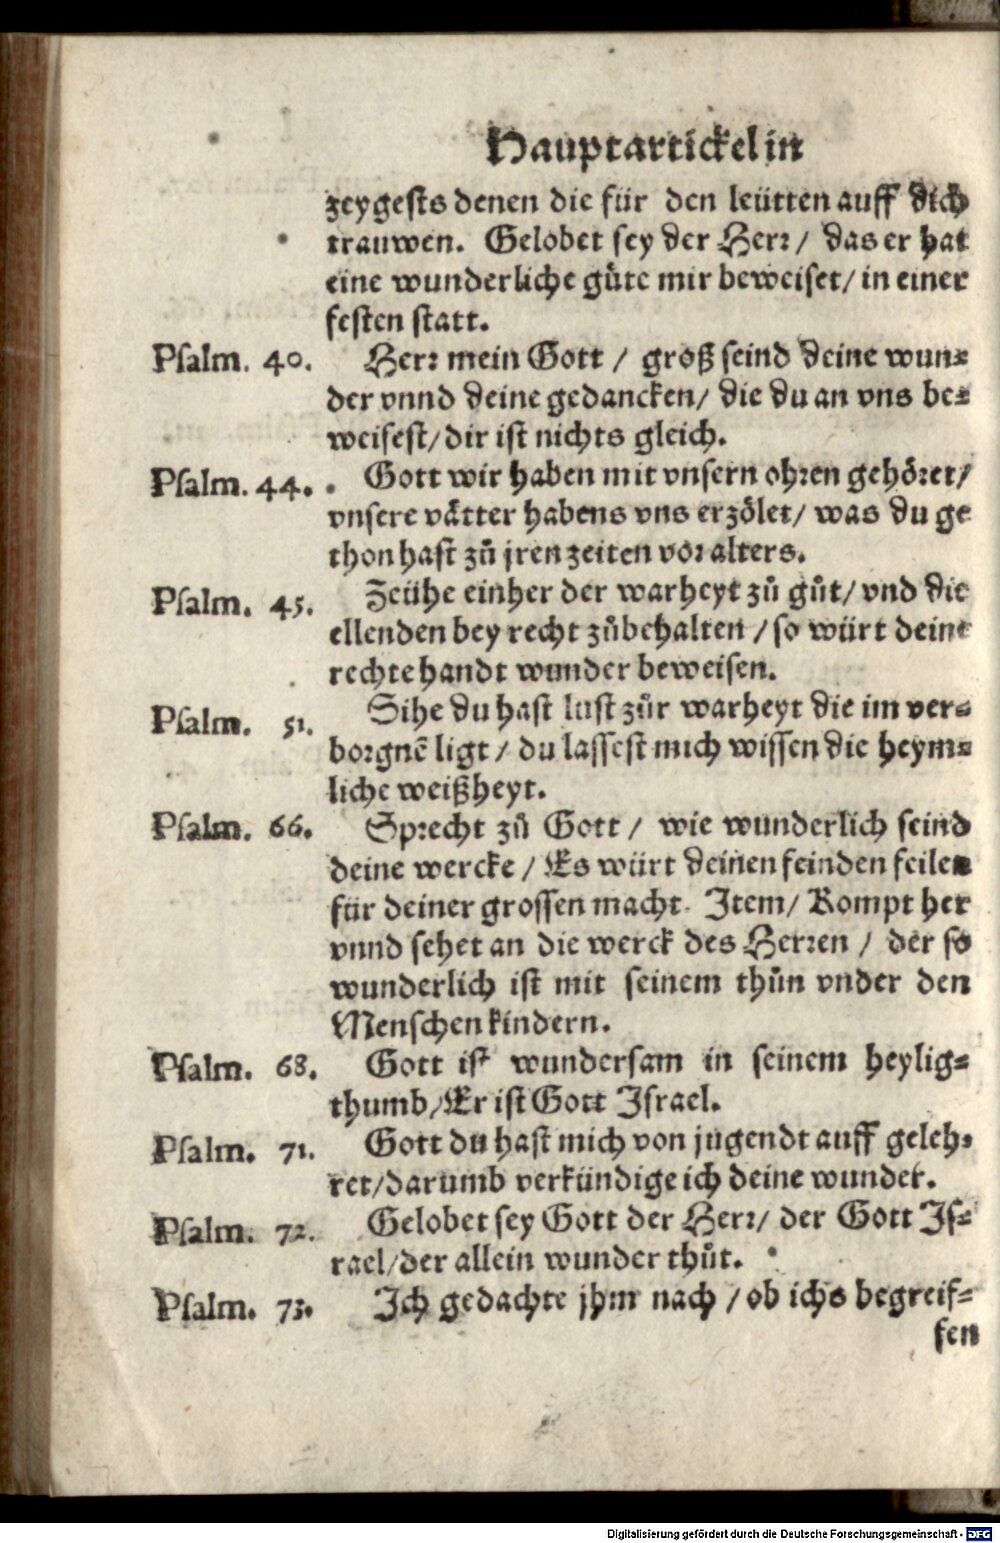 Hauptartickel in
zeygests denen die für den leütten auff dich
trauwen. Gelobet sey der Herr / das er hat
eine wunderliche gůte mir beweiset / in einer
festen statt.
Psalm. 40. Herr mein Gott / groß seind deine wun⸗
der vnnd deine gedancken / die du an vns be⸗
weisest / dir ist nichts gleich.
Psalm. 44. Gott wir haben mit vnsern ohren gehöret /
vnsere vätter habens vns erzölet / was du ge
thon hast zů jren zeiten vor alters.
Psalm. 45. Zeühe einher der warheyt zů gůt / vnd die
ellenden bey recht zůbehalten / so würt deine
rechte handt wunder beweisen.
Psalm. 51. Sihe du hast lust zůr warheyt die im ver⸗
borgnẽ ligt / du lassest mich wissen die heym⸗
liche weißheyt.
Psalm. 66. Sprecht zů Gott / wie wunderlich seind
deine wercke / Es würt deinen feinden feilen
für deiner grossen macht. Item / Kompt her
vnnd sehet an die werck des Herren / der so
wunderlich ist mit seinem thůn vnder den
Menschen kindern.
Psalm. 68. Gott ist wundersam in seinem heylig⸗
thumb / Er ist Gott Israel.
Psalm. 71. Gott du hast mich von jugendt auff geleh⸗
ret / darumb verkündige ich deine wunder.
Psalm. 72. Gelobet sey Gott der Herr / der Gott Is⸗
rael / der allein wunder thůt.
Psalm. 73. Ich gedachte jhm nach / ob ichs begreif⸗
fen
Digitalisierung gefördert durch die Deutsche Forschungsgemeinschaft - DFG